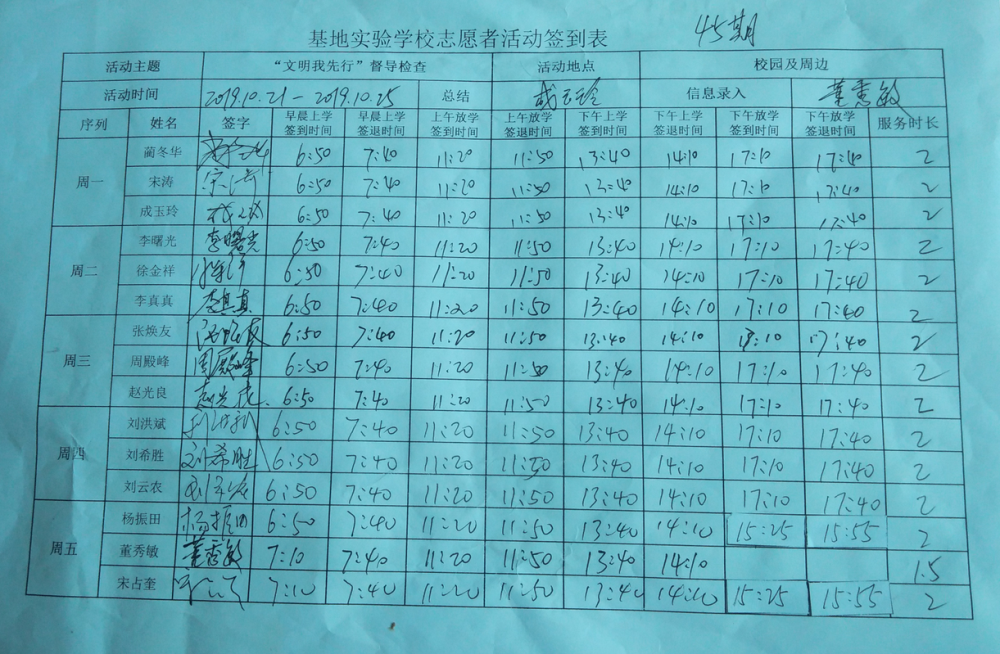 基地实验学校志愿者活动签到表 45期
活动主题 “文明我先行”督导检查 活动地点 校园及周边
活动时间 2019.10.21-2019.10.25 总结 成玉玲 信息录入 董秀敏
序列 姓名 签字 早晨上学签到时间 早晨上学签退时间 上午放学签到时间 上午放学签退时间 下午上学签到时间 下午上学签退时间 下午放学签到时间 下午放学签退时间 服务时长
周一 蔺冬华 6:50 7:40 11:20 11:50 13:40 14:10 17:10 17:40 2
宋涛 宋涛 6:50 7:40 11:20 11:50 13:40 14:10 17:10 17:40 2
成玉玲 6:50 7:40 11:20 11:50 13:40 14:10 17:10 17:40 2
周二 李曙光 李曙光 6:50 7:40 11:20 11:50 13:40 14:10 17:10 17:40 2
徐金祥 6:50 7:40 11:20 11:50 13:40 14:10 17:10 17:40 2
李真真 李真真 6:50 7:40 11:20 11:50 13:40 14:10 17:10 17:40 2
周三 张焕友 6:50 7:40 11:20 11:50 13:40 14:10 17:10 17:40 2
周殿峰 周殿峰 6:50 7:40 11:20 11:50 13:40 14:10 17:10 17:40 2
赵光良 6:50 7:40 11:20 11:50 13:40 14:10 17:10 17:40 2
周四 刘洪斌 6:50 7:40 11:20 11:50 13:40 14:10 17:10 17:40 2
刘希胜 刘希胜 6:50 7:40 11:20 11:50 13:40 14:10 17:10 17:40 2
刘云农 6:50 7:40 11:20 11:50 13:40 14:10 17:10 17:40 2
周五 杨振田 杨振田 6:50 7:40 11:20 11:50 13:40 14:10 15:25 15:55 2
董秀敏 董秀敏 7:10 7:40 11:20 11:50 13:40 14:10 1.5
宋占奎 7:10 7:40 11:20 11:50 13:40 14:10 15:25 15:55 2